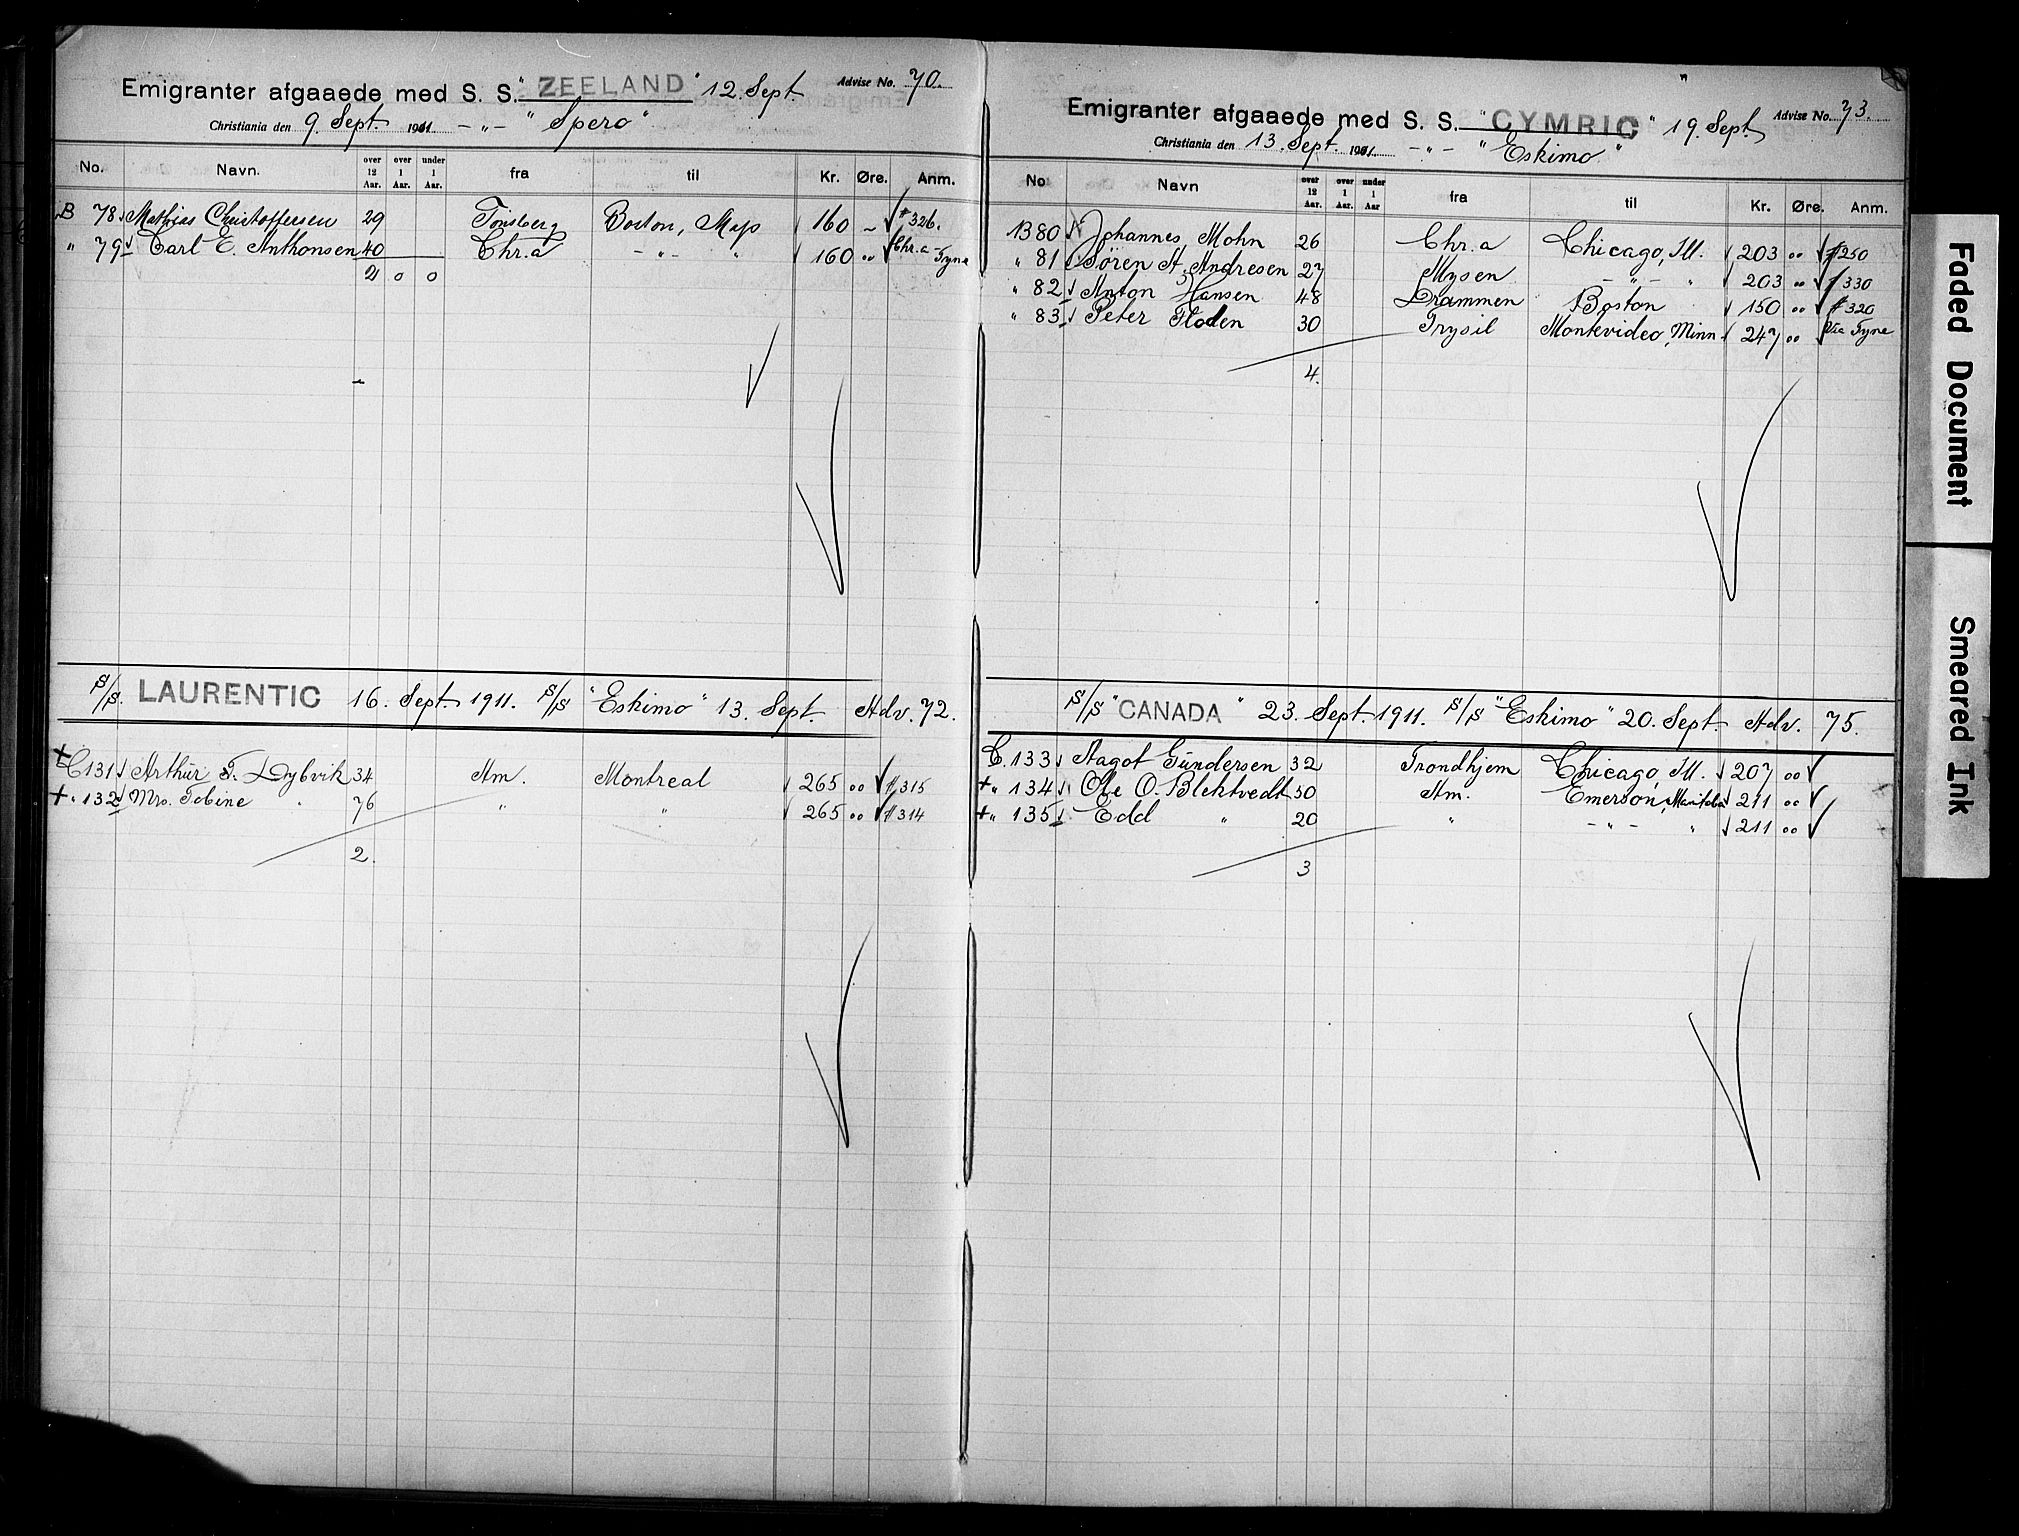 Emigranter afgaaede med S. S. "ZEELAND" 12. Sept Advise No. 70.
Christiania den 9. Sept. 1911 -"- "Spero"
No. Navn. over 12 Aar. over 1 Aar. under 1 Aar. fra til Kr. Øre. Anm.
B 78 Mathias Christoffersen 29 Tönsberg Boston, Mass 160 - # 326.
" 79 Carl E. Anthonsen 40 Chr.a -"- " 160 " Chr.a - Tyne
2 0 0
S/S. LAURENTIC 16. Sept 1911. S/S "Eskimo" 13. Sept Adv. 72.
+ C131 Arthur F. Dybvik 34 Am. Montreal 265 00 # 315
+ " 132 Mrs. Tobine " 76 " " 265 00 # 314
2.
Emigranter afgaaede med S. S. "CYMRIC" 19. Sept Advise No. 73.
Christiania den 13. Sept. 1911 -"- "Eskimo"
No Navn over 12 Aar. over 1 Aar. under 1 Aar fra til Kr. Øre. Anm.
B 80 Johannes Mohn 26 Chr.a Chicago, Ill. 203 00 # 250
" 81 Sören A. Andresen 27 Mysen -"- " 203 00 # 330
" 82 Anton Hansen 48 Drammen Boston 150 00 # 320
" 83 Peter Floden 30 Trysil Montevideo, Minn 247 00 Via Tyne
4.
S/S "CANADA" 23. Sept. 1911. S/S "Eskimo" 20. Sept. Adv. 75.
C. 133 Aagot Gundersen 32 Trondhjem Chicago, Ill. 207 00
+ " 134 Ole O. Blektvedt 50 Am. Emerson, Manitoba 211 00
+ " 135 Edd " 20 " -"- " 211 00
3
Faded Document
Smeared Ink